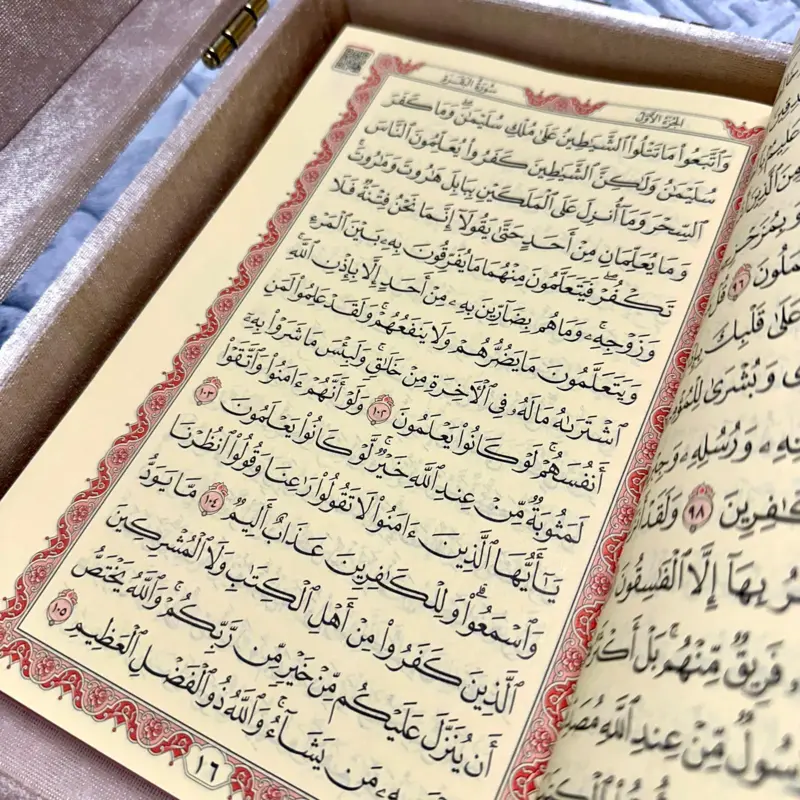 الجزء الأول
سورة البقرة
وَٱتَّبَعُوا۟ مَا تَتْلُوا۟ ٱلشَّيَٰطِينُ عَلَىٰ مُلْكِ سُلَيْمَٰنَ ۖ وَمَا كَفَرَ
سُلَيْمَٰنُ وَلَٰكِنَّ ٱلشَّيَٰطِينَ كَفَرُوا۟ يُعَلِّمُونَ ٱلنَّاسَ
ٱلسِّحْرَ وَمَآ أُنزِلَ عَلَى ٱلْمَلَكَيْنِ بِبَابِلَ هَٰرُوتَ وَمَٰرُوتَ ۚ
وَمَا يُعَلِّمَانِ مِنْ أَحَدٍ حَتَّىٰ يَقُولَآ إِنَّمَا نَحْنُ فِتْنَةٌ فَلَا
تَكْفُرْ ۖ فَيَتَعَلَّمُونَ مِنْهُمَا مَا يُفَرِّقُونَ بِهِۦ بَيْنَ ٱلْمَرْءِ
وَزَوْجِهِۦ ۚ وَمَا هُم بِضَآرِّينَ بِهِۦ مِنْ أَحَدٍ إِلَّا بِإِذْنِ ٱللَّهِ ۚ
وَيَتَعَلَّمُونَ مَا يَضُرُّهُمْ وَلَا يَنفَعُهُمْ ۚ وَلَقَدْ عَلِمُوا۟ لَمَنِ
ٱشْتَرَىٰهُ مَا لَهُۥ فِى ٱلْءَاخِرَةِ مِنْ خَلَٰقٍ ۚ وَلَبِئْسَ مَا شَرَوْا۟ بِهِۦٓ
أَنفُسَهُمْ ۚ لَوْ كَانُوا۟ يَعْلَمُونَ ١٠٢ وَلَوْ أَنَّهُمْ ءَامَنُوا۟ وَٱتَّقَوْا۟
لَمَثُوبَةٌ مِّنْ عِندِ ٱللَّهِ خَيْرٌ ۖ لَّوْ كَانُوا۟ يَعْلَمُونَ ١٠٣
يَٰٓأَيُّهَا ٱلَّذِينَ ءَامَنُوا۟ لَا تَقُولُوا۟ رَٰعِنَا وَقُولُوا۟ ٱنظُرْنَا
وَٱسْمَعُوا۟ ۗ وَلِلْكَٰفِرِينَ عَذَابٌ أَلِيمٌ ١٠٤ مَّا يَوَدُّ
ٱلَّذِينَ كَفَرُوا۟ مِنْ أَهْلِ ٱلْكِتَٰبِ وَلَا ٱلْمُشْرِكِينَ
أَن يُنَزَّلَ عَلَيْكُم مِّنْ خَيْرٍ مِّن رَّبِّكُمْ ۗ وَٱللَّهُ يَخْتَصُّ
مَن يَشَآءُ ۚ وَٱللَّهُ ذُو ٱلْفَضْلِ ٱلْعَظِيمِ ١٠٥
١٦
٩٦ قُلْ
عَلَىٰ قَلْبِكَ
وَبُشْرَىٰ
وَرُسُلِهِۦ
٩٨ وَلَقَدْ
بِهَآ إِلَّا ٱلْفَٰسِقُونَ
فَرِيقٌ مِّنْهُم ۚ بَلْ
مِّنْ عِندِ ٱللَّهِ